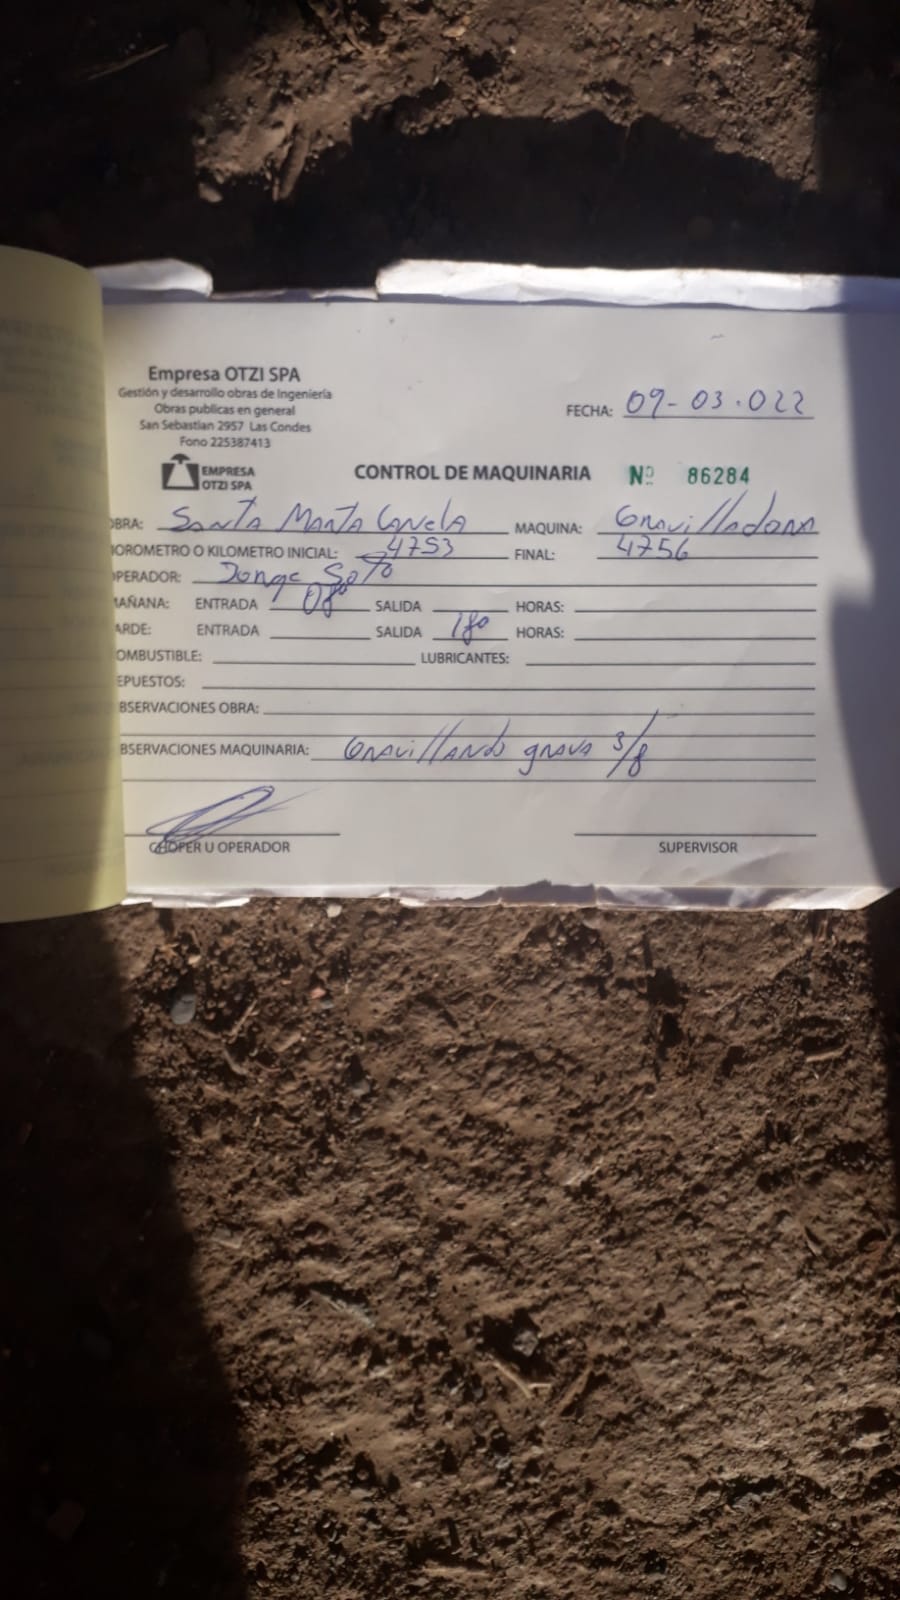 Empresa OTZI SPA
Gestión y desarrollo obras de Ingeniería
Obras publicas en general
San Sebastian 2957 Las Condes
Fono 225387413
FECHA: 09-03.022
EMPRESA
OTZI SPA
CONTROL DE MAQUINARIA Nº 86284
OBRA: Santa Marta Canela MAQUINA: Gravilladora
HOROMETRO O KILOMETRO INICIAL: 4753 FINAL: 4756
OPERADOR: Jorge Soto
MAÑANA: ENTRADA 08º SALIDA HORAS:
TARDE: ENTRADA SALIDA 18º HORAS:
COMBUSTIBLE: LUBRICANTES:
REPUESTOS:
OBSERVACIONES OBRA:
OBSERVACIONES MAQUINARIA: Gravillando grava 3/8
CHOFER U OPERADOR SUPERVISOR